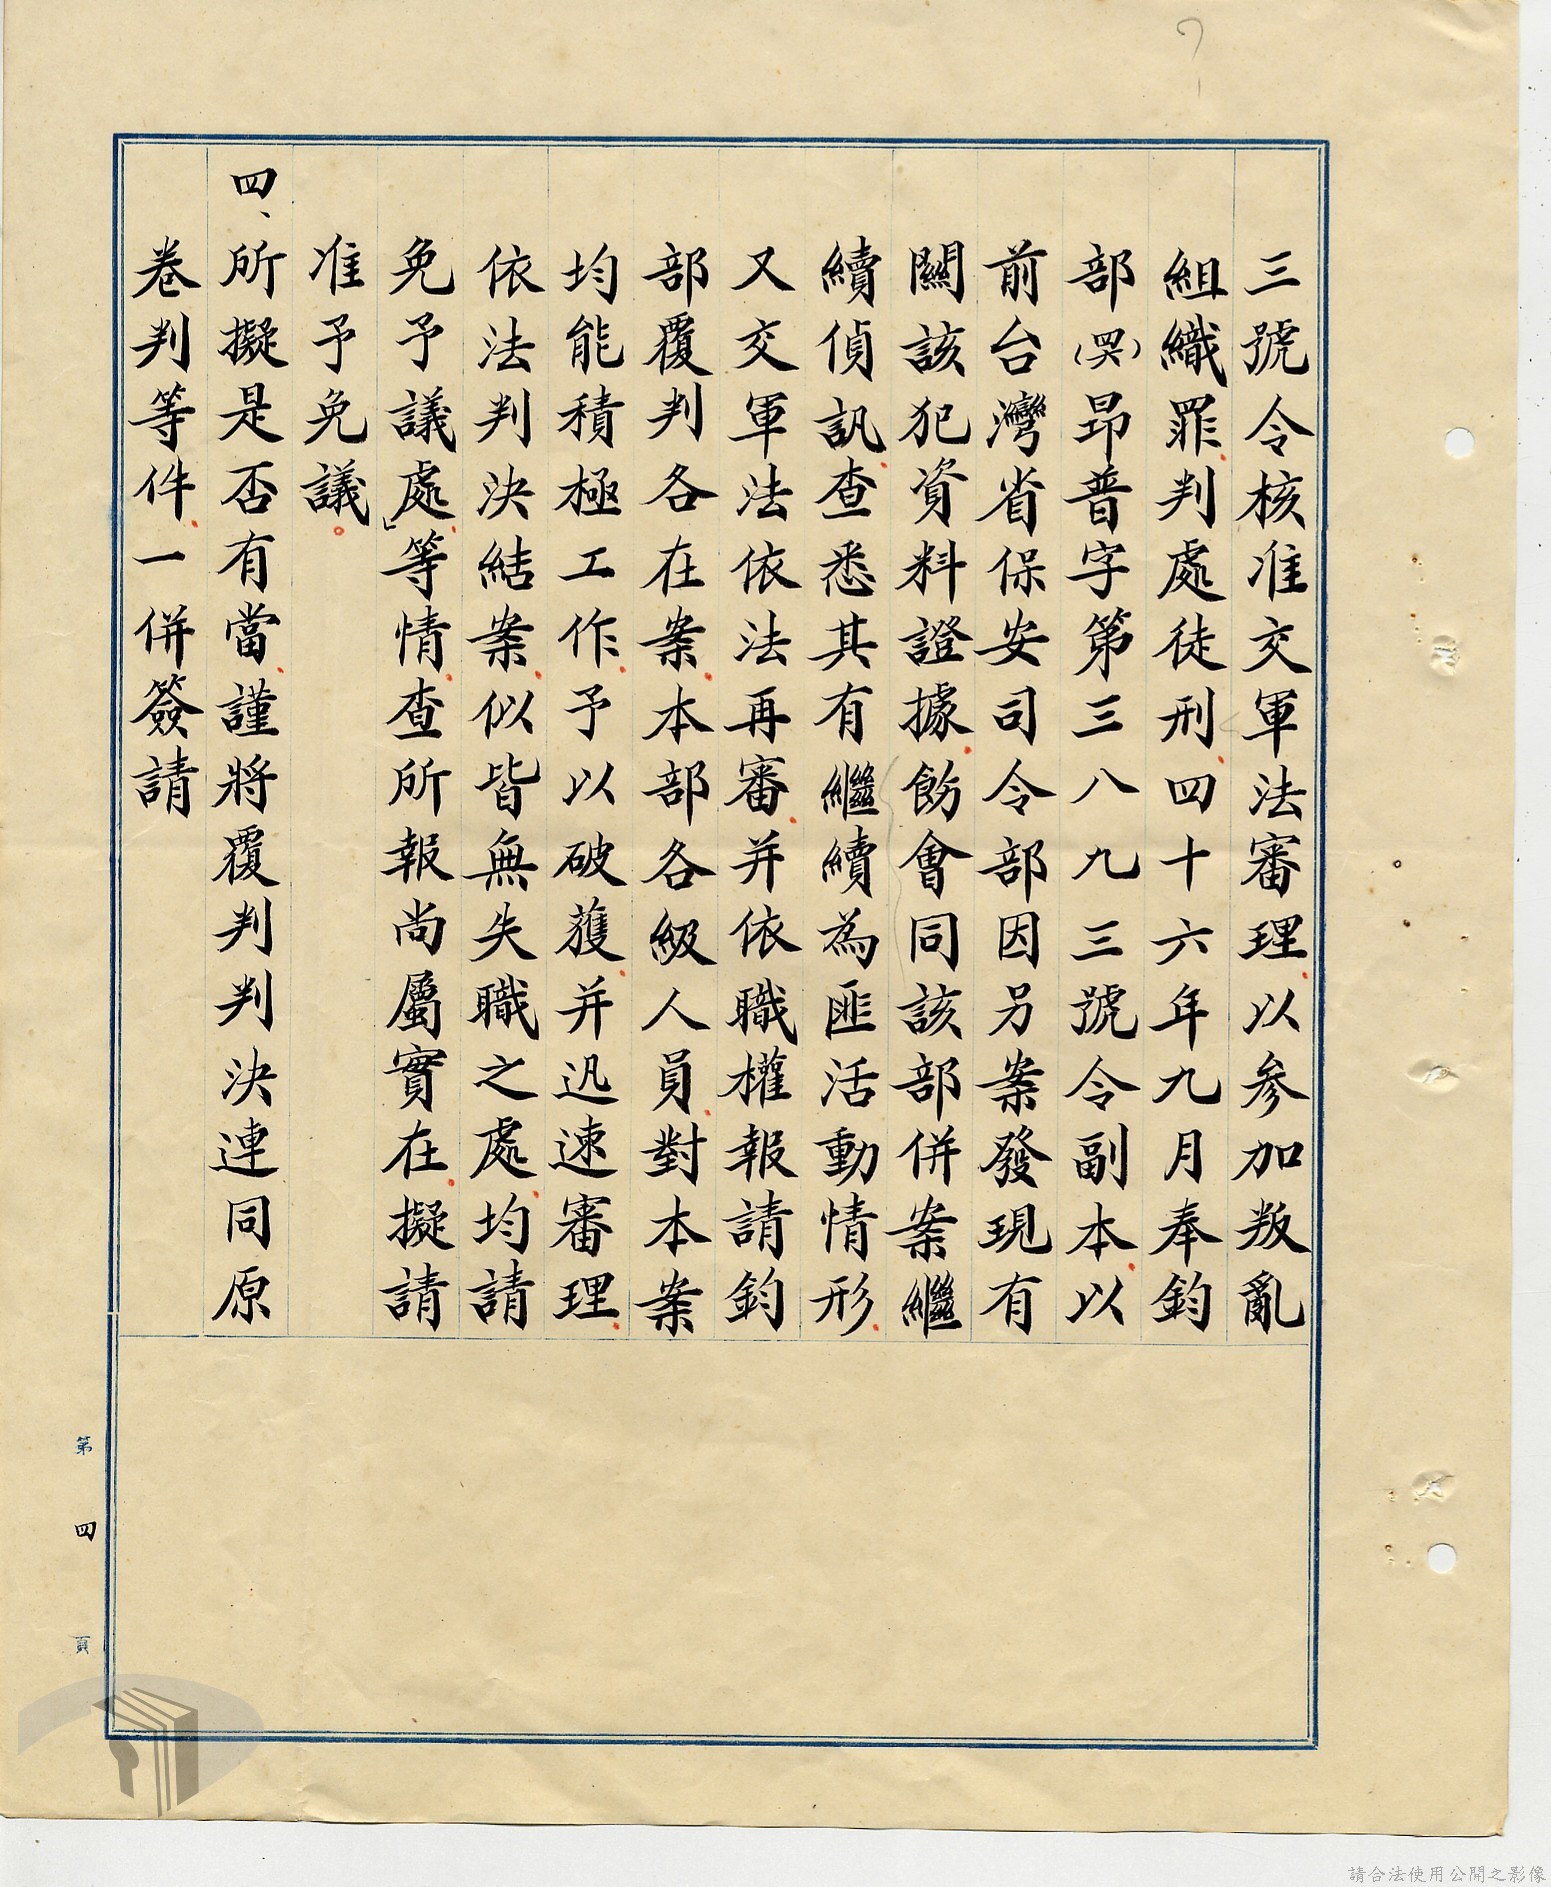 三號令核准交軍法審理以參加叛亂
組織罪判處徒刑四十六年九月奉鈞
部(哭)昂普字第三八九三號令副本以
前台灣省保安司令部因另案發現有
關該犯資料證據飭會同該部併案繼
續偵訊查悉其有繼續為匪活動情形
又交軍法依法再審并依職權報請鈞
部覆判各在案本部各級人員對本案
均能積極工作予以破獲并迅速審理
依法判決結案似皆無失職之處均請
免予議處」等情查所報尚屬實在擬請
准予免議。
四、所擬是否有當謹將覆判判決連同原
卷判等件一併簽請
第四頁
請合法使用公開之影像